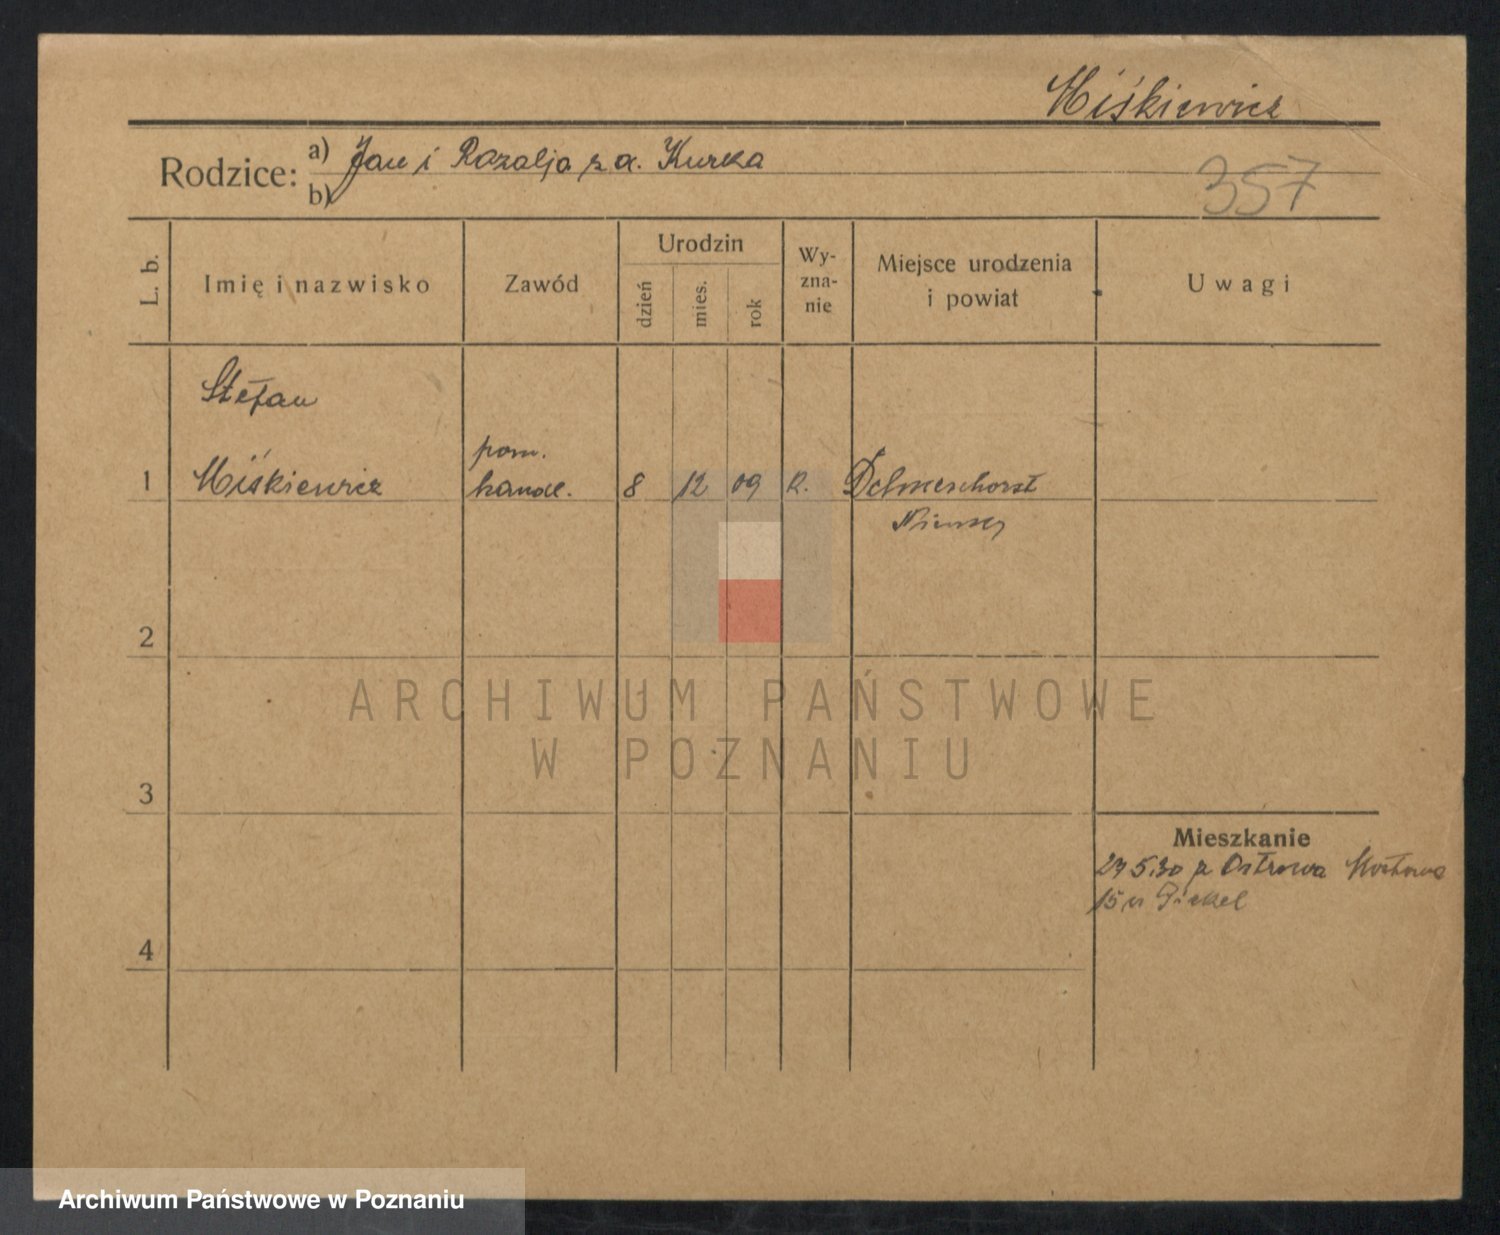 Miśkiewicz
Rodzice: a) Jan i Rozalja z d. Kurka
b)
357
L. b.
Imię i nazwisko
Zawód
Urodzin
dzień
mies.
rok
Wy-
zna-
nie
Miejsce urodzenia
i powiat
Uwagi
Stefan
1 Miśkiewicz
pom.
handl.
8 12 09 R.
Delmenhorst
Niemcy
2
3
4
Mieszkanie
27 5.30 z Ostrowa
15 u
ARCHIWUM PAŃSTWOWE
W POZNANIU
Archiwum Państwowe w Poznaniu